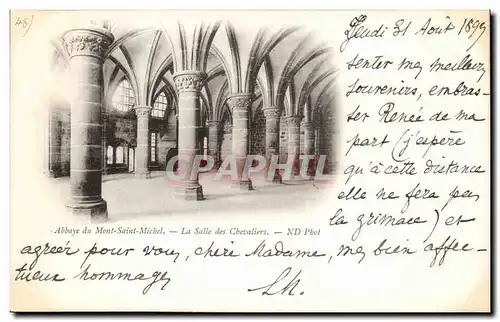 48)
Jeudi 31 Août 1899
senter mes meilleurs
souvenirs, embras-
ser Renée de ma
part (j'espère
qu'à cette distance
elle ne fera pas
la grimace) et
CPARAMA
Abbaye du Mont-Saint-Michel. — La Salle des Chevaliers. — ND Phot
agréer pour vous, chère Madame, mes bien affec-
tueux hommages.